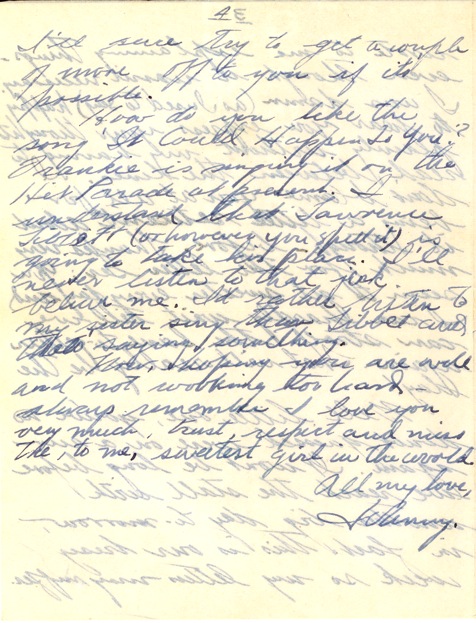 4
I'll sure try to get a couple
of more off to you if its
possible.
How do you like the
song "It Could Happen To You"?
Frankie is singing it on the
Hit Parade at present. I
understand that Lawrence
Tibbett (or however you spell it) is
going to take his place. I'll
never listen to that jerk
believe me. I'd rather listen to
my sister sing than Tibbet and
thats saying something.
Now, hoping you are well
and not working too hard –
always remember I love you
very much, trust, respect and miss
the, to me, sweetest girl in the world
All my love,